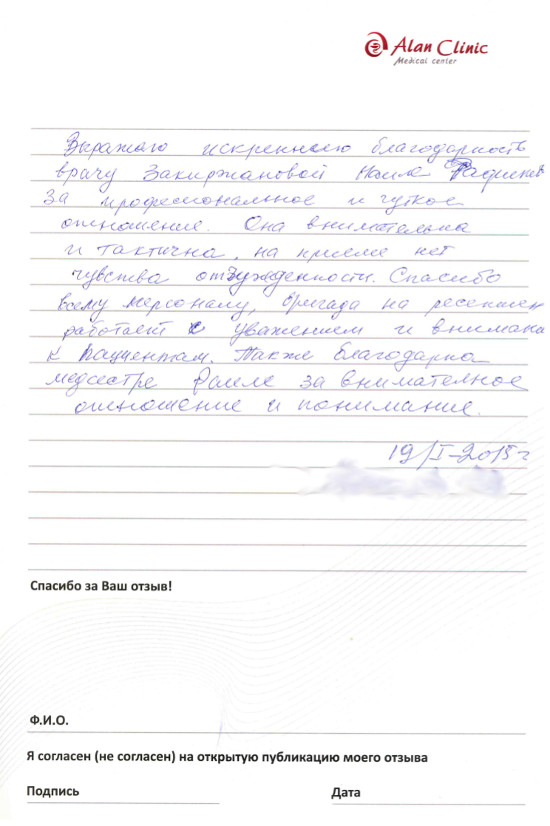 Alan Clinic
Medical center
Выражаю искреннюю благодарность
врачу Закиржановой Наиле
за профессиональное и чуткое
отношение. Она внимательна
и тактична, на приеме нет
чувства отчужденности. Спасибо
всему персоналу, бригада на ресепшен
работает с уважением и внимани
к пациентам. Также благодарна
медсестре Раиле за внимателное
отношение и понимание.
19/I-2015г
Спасибо за Ваш отзыв!
Ф.И.О.
Я согласен (не согласен) на открытую публикацию моего отзыва
Подпись Дата